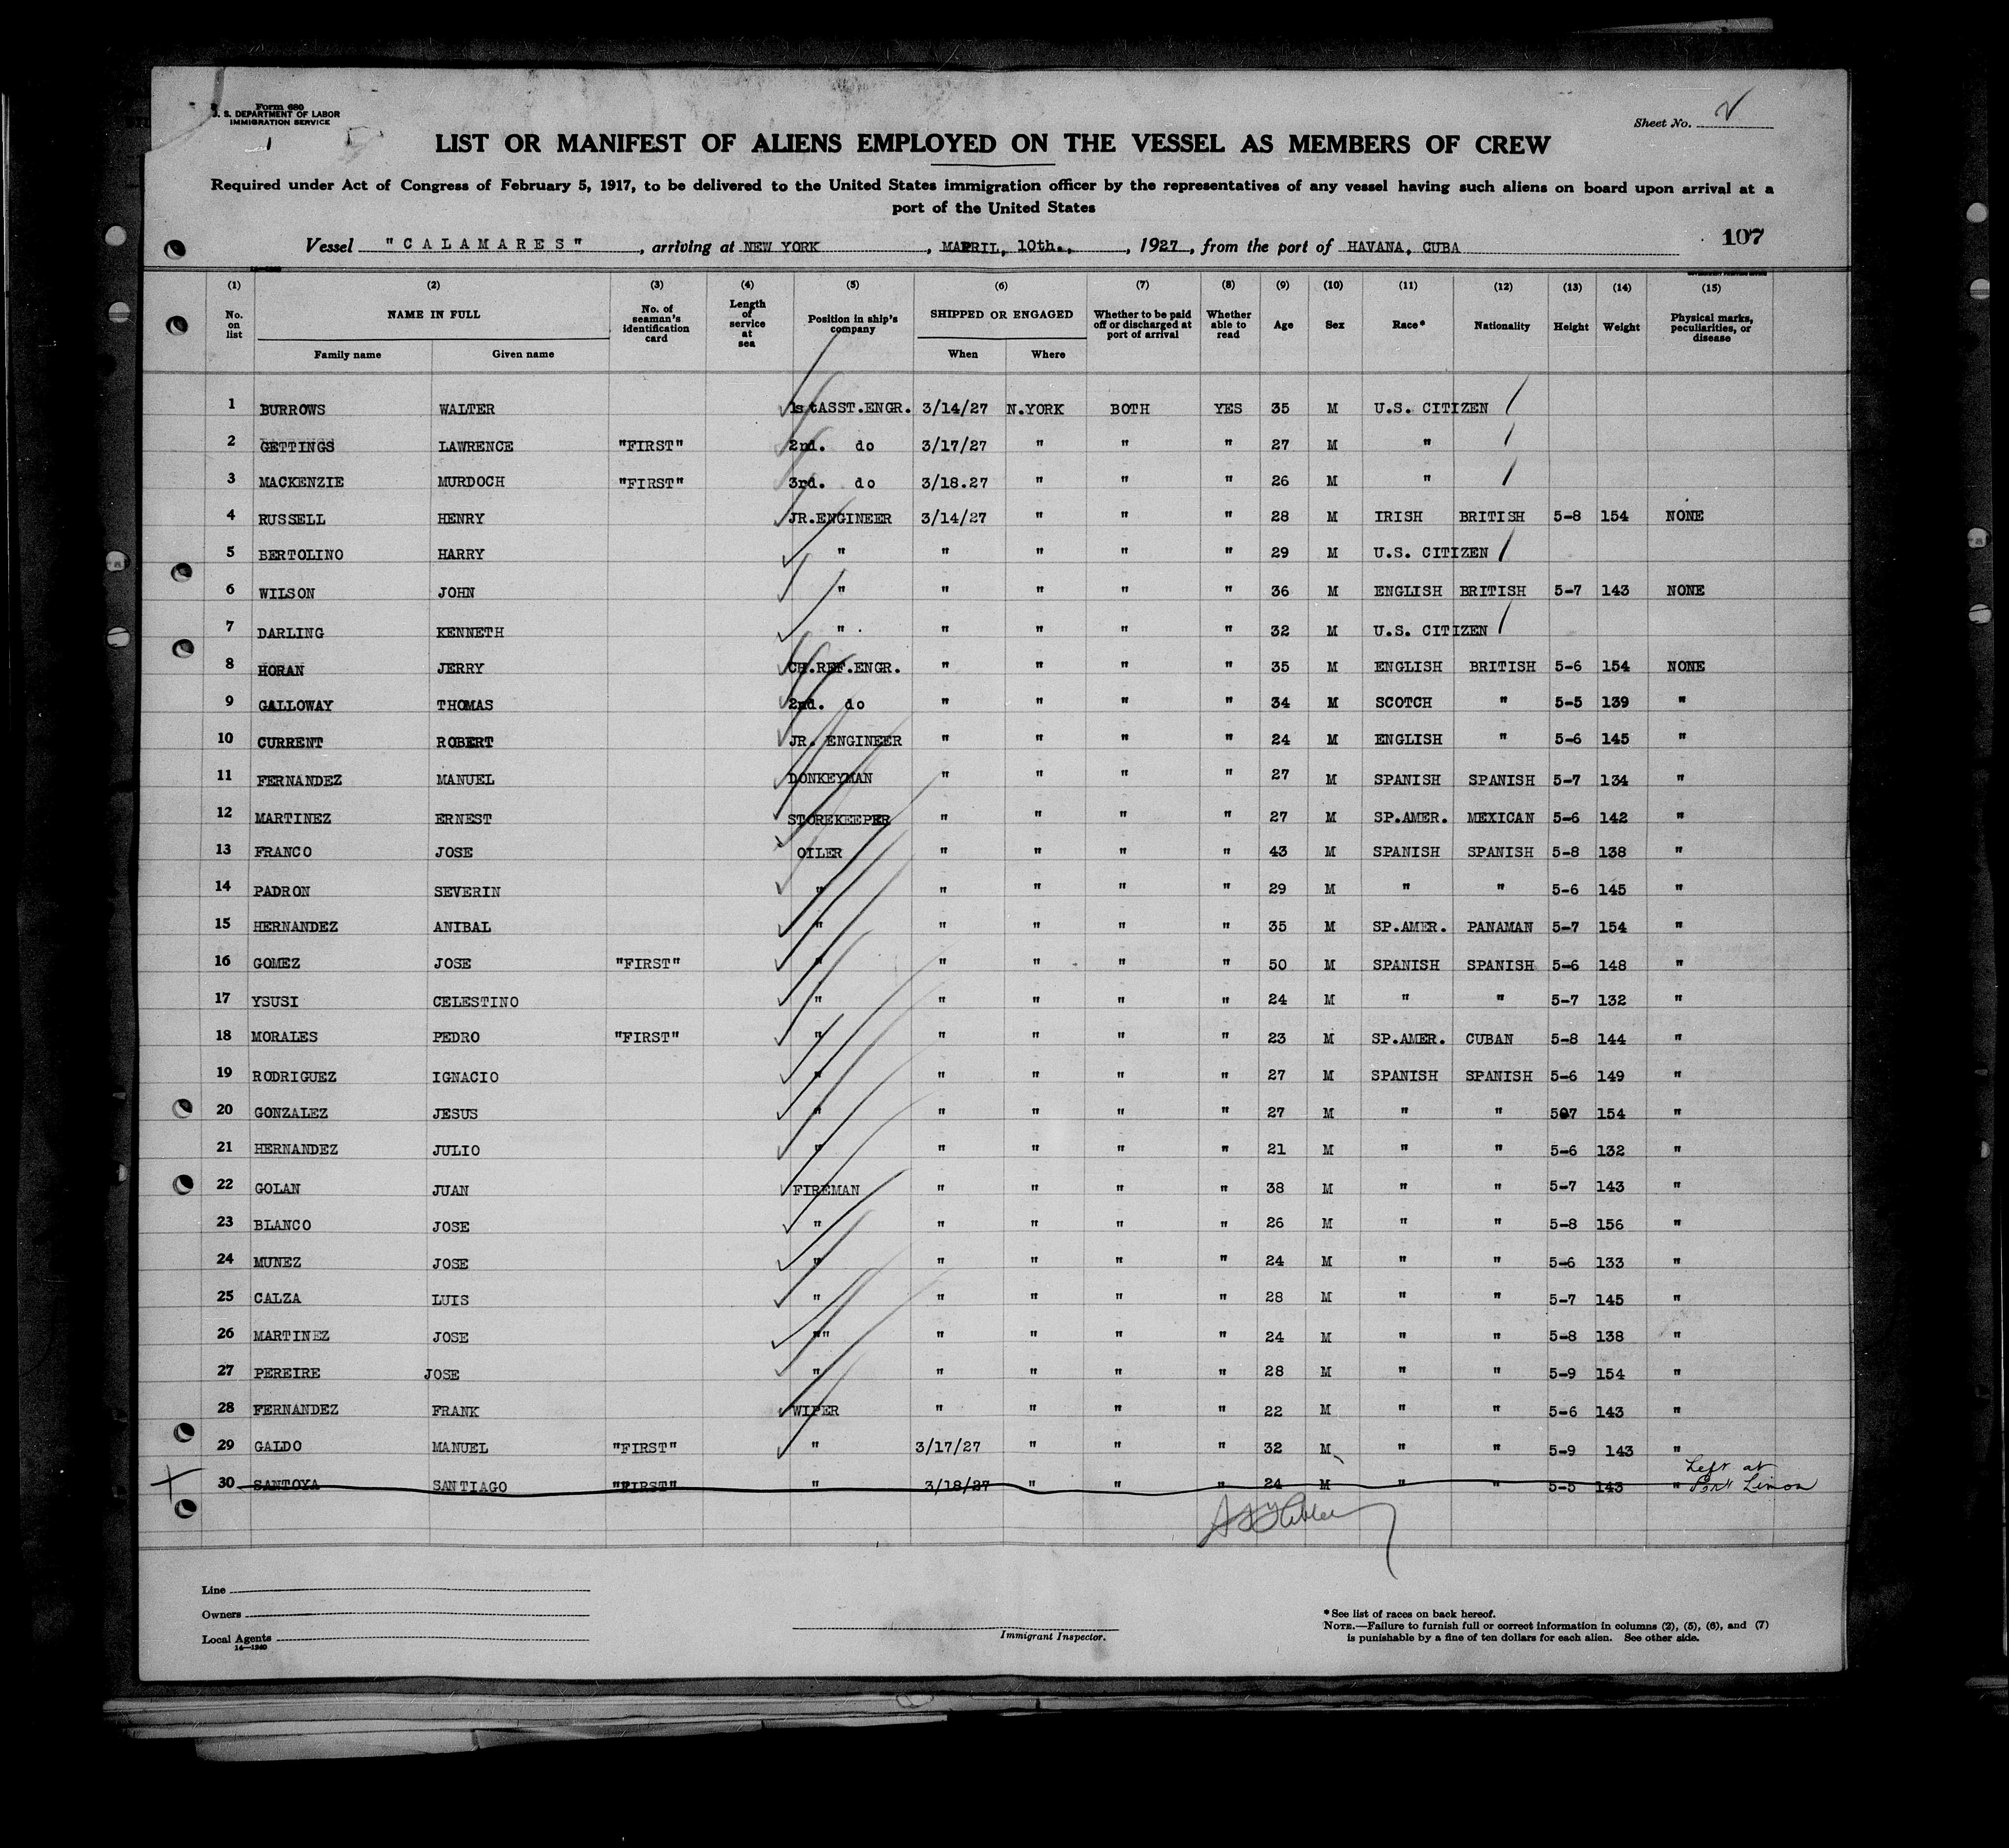 Form 680
U. S. DEPARTMENT OF LABOR
IMMIGRATION SERVICE
Sheet No.
LIST OR MANIFEST OF ALIENS EMPLOYED ON THE VESSEL AS MEMBERS OF CREW
Required under Act of Congress of February 5, 1917, to be delivered to the United States immigration officer by the representatives of any vessel having such aliens on board upon arrival at a
port of the United States
Vessel "CALAMARES", arriving at NEW YORK, APRIL, 10th., 1927, from the port of HAVANA, CUBA 107
(1) (2) (3) (4) (5) (6) (7) (8) (9) (10) (11) (12) (13) (14) (15)
No. on list NAME IN FULL No. of seaman's identification card Length of service at sea Position in ship's company SHIPPED OR ENGAGED Whether to be paid off or discharged at port of arrival Whether able to read Age Sex Race* Nationality Height Weight Physical marks, peculiarities, or disease
Family name Given name When Where
1 BURROWS WALTER 1st ASST.ENGR. 3/14/27 N.YORK BOTH YES 35 M U.S. CITIZEN
2 GETTINGS LAWRENCE "FIRST" 2nd. do 3/17/27 " " " 27 M "
3 MACKENZIE MURDOCH "FIRST" 3rd. do 3/18.27 " " " 26 M "
4 RUSSELL HENRY JR.ENGINEER 3/14/27 " " " 28 M IRISH BRITISH 5-8 154 NONE
5 BERTOLINO HARRY " " " " " 29 M U.S. CITIZEN
6 WILSON JOHN " " " " " 36 M ENGLISH BRITISH 5-7 143 NONE
7 DARLING KENNETH " " " " " 32 M U.S. CITIZEN
8 HORAN JERRY CH.REF.ENGR. " " " " 35 M ENGLISH BRITISH 5-6 154 NONE
9 GALLOWAY THOMAS 2nd. do " " " " 34 M SCOTCH " 5-5 139 "
10 CURRENT ROBERT JR. ENGINEER " " " " 24 M ENGLISH " 5-6 145 "
11 FERNANDEZ MANUEL DONKEYMAN " " " " 27 M SPANISH SPANISH 5-7 134 "
12 MARTINEZ ERNEST STOREKEEPER " " " " 27 M SP.AMER. MEXICAN 5-6 142 "
13 FRANCO JOSE OILER " " " " 43 M SPANISH SPANISH 5-8 138 "
14 PADRON SEVERIN " " " " " 29 M " " 5-6 145 "
15 HERNANDEZ ANIBAL " " " " " 35 M SP.AMER. PANAMAN 5-7 154 "
16 GOMEZ JOSE "FIRST" " " " " " 50 M SPANISH SPANISH 5-6 148 "
17 YSUSI CELESTINO " " " " " 24 M " " 5-7 132 "
18 MORALES PEDRO "FIRST" " " " " " 23 M SP.AMER. CUBAN 5-8 144 "
19 RODRIGUEZ IGNACIO " " " " " 27 M SPANISH SPANISH 5-6 149 "
20 GONZALEZ JESUS " " " " " 27 M " " 507 154 "
21 HERNANDEZ JULIO " " " " " 21 M " " 5-6 132 "
22 GOLAN JUAN FIREMAN " " " " 38 M " " 5-7 143 "
23 BLANCO JOSE " " " " " 26 M " " 5-8 156 "
24 MUNEZ JOSE " " " " " 24 M " " 5-6 133 "
25 CALZA LUIS " " " " " 28 M " " 5-7 145 "
26 MARTINEZ JOSE "" " " " " 24 M " " 5-8 138 "
27 PEREIRE JOSE " " " " " 28 M " " 5-9 154 "
28 FERNANDEZ FRANK WIPER " " " " 22 M " " 5-6 143 "
29 GALDO MANUEL "FIRST" " 3/17/27 " " " 32 M " " 5-9 143 "
30 SANTOYA SANTIAGO "FIRST" " 3/18/27 " " " 24 M " " 5-5 143 " Left at Port Limon
Line
Owners
Local Agents
14—1240
Immigrant Inspector.
*See list of races on back hereof.
NOTE.—Failure to furnish full or correct information in columns (2), (5), (6), and (7)
is punishable by a fine of ten dollars for each alien. See other side.